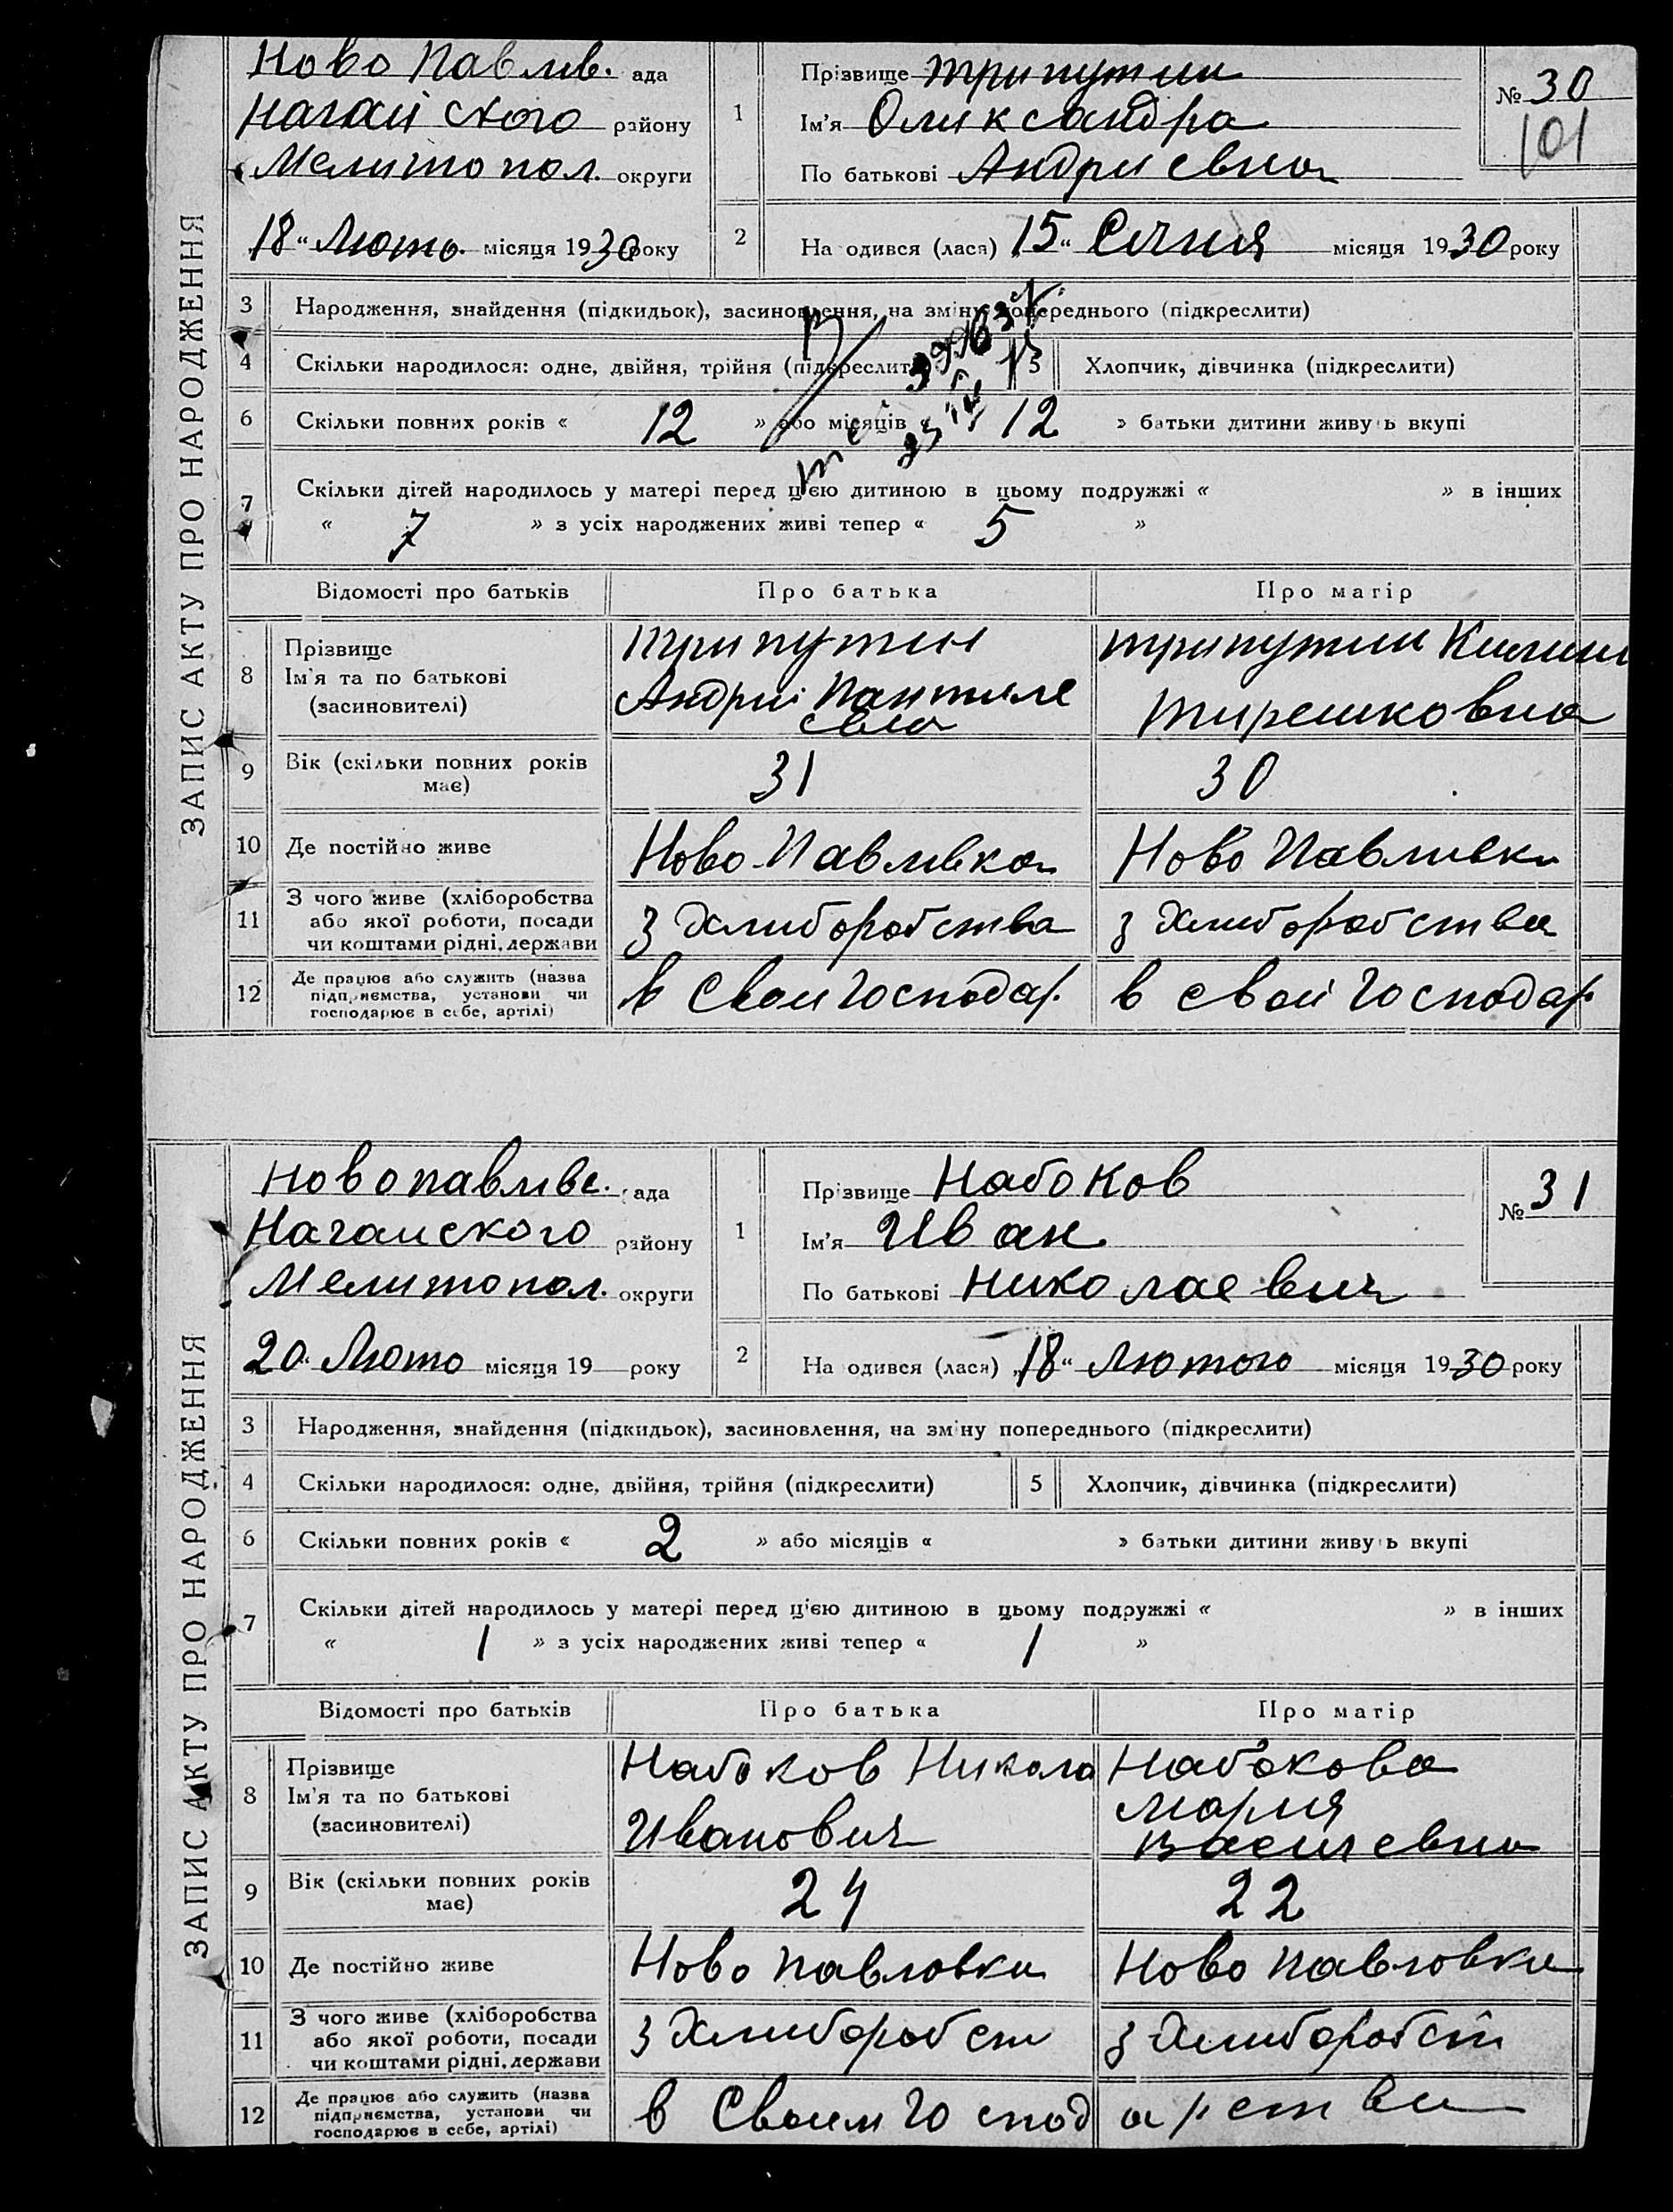 ЗАПИС АКТУ ПРО НАРОДЖЕННЯ
Ново Павлів. ада
Нагай ского району
Мелитопол. округи
18 " Люто. місяця 1930 року
1
Прізвище Трипутин
Ім'я Олександра
По батькові Андриевна
№ 30
101
2
На одився (лася) 15 " Січня місяця 1930 року
3 Народження, знайдення (підкидьок), засиновлення, на зміну попереднього (підкреслити)
4 Скільки народилося: одне, двійня, трійня (підкреслити) 5 Хлопчик, дівчинка (підкреслити)
6 Скільки повних років « 12 » або місяців « 12 » батьки дитини живуть вкупі
7 Скільки дітей народилось у матері перед цією дитиною в цьому подружжі « » в інших
« 7 » з усіх народжених живі тепер « 5 »
Відомості про батьків Про батька Про матір
8 Прізвище
Ім'я та по батькові
(засиновителі)
Трипутин
Андрий Пантиле
Трипутин
9 Вік (скільки повних років
має) 31 30
10 Де постійно живе Ново-Павливка Ново Павливки
11 З чого живе (хліборобства
або якої роботи, посади
чи коштами рідні, держави
з Хлиборобства з Хлиборобства
12 Де працює або служить (назва
підприємства, установи чи
господарює в себе, артілі)
в Свои Господар. в свои Господар
ЗАПИС АКТУ ПРО НАРОДЖЕННЯ
Новопавливс. ада
Нагаиского району
Мелитопол. округи
20. Люто місяця 19 року
1
Прізвище Набоков
Ім'я Иван
По батькові Николаевич
№ 31
2
На одився (лася) „18" Лютого місяця 1930 року
3 Народження, знайдення (підкидьок), засиновлення, на зміну попереднього (підкреслити)
4 Скільки народилося: одне, двійня, трійня (підкреслити) 5 Хлопчик, дівчинка (підкреслити)
6 Скільки повних років « 2 » або місяців « » батьки дитини живуть вкупі
7 Скільки дітей народилось у матері перед цією дитиною в цьому подружжі « » в інших
« 1 » з усіх народжених живі тепер « 1 »
Відомості про батьків Про батька Про матір
8 Прізвище
Ім'я та по батькові
(засиновителі)
Набоков Никола
Иванович
Набокова
Мария
Василевна
9 Вік (скільки повних років
має) 24 22
10 Де постійно живе Ново Павловки Ново Павловки
11 З чого живе (хліборобства
або якої роботи, посади
чи коштами рідні, держави
з Хлиборобст з Хлиборобст
12 Де працює або служить (назва
підприємства, установи чи
господарює в себе, артілі)
в Своим господарстви